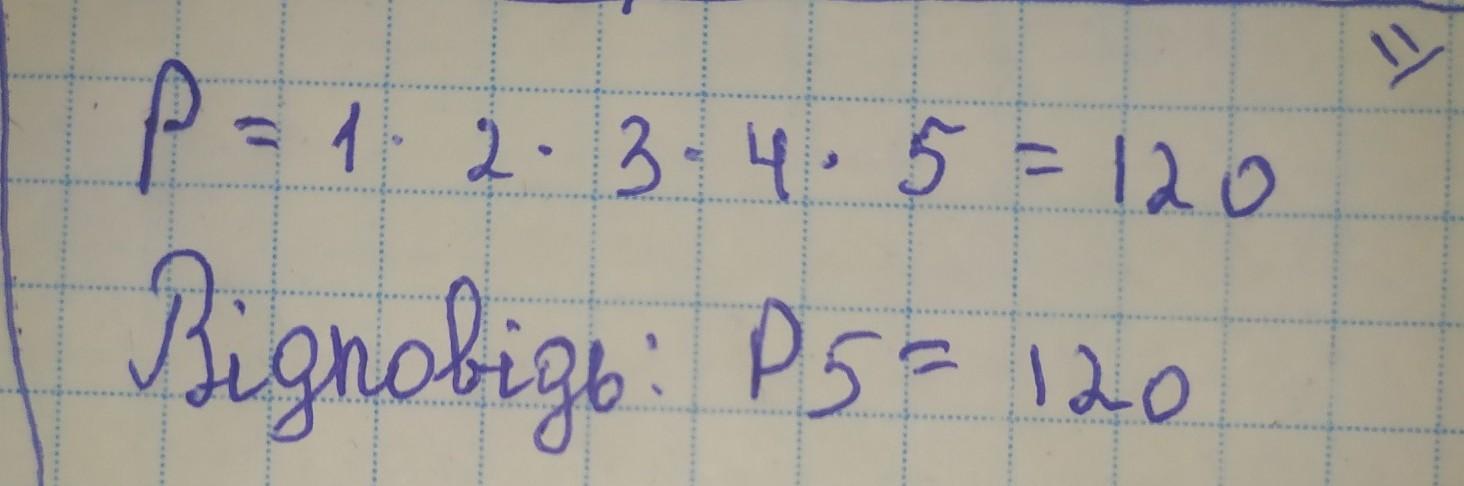 P = 1 · 2 · 3 · 4 · 5 = 120
Відповідь: P5 = 120